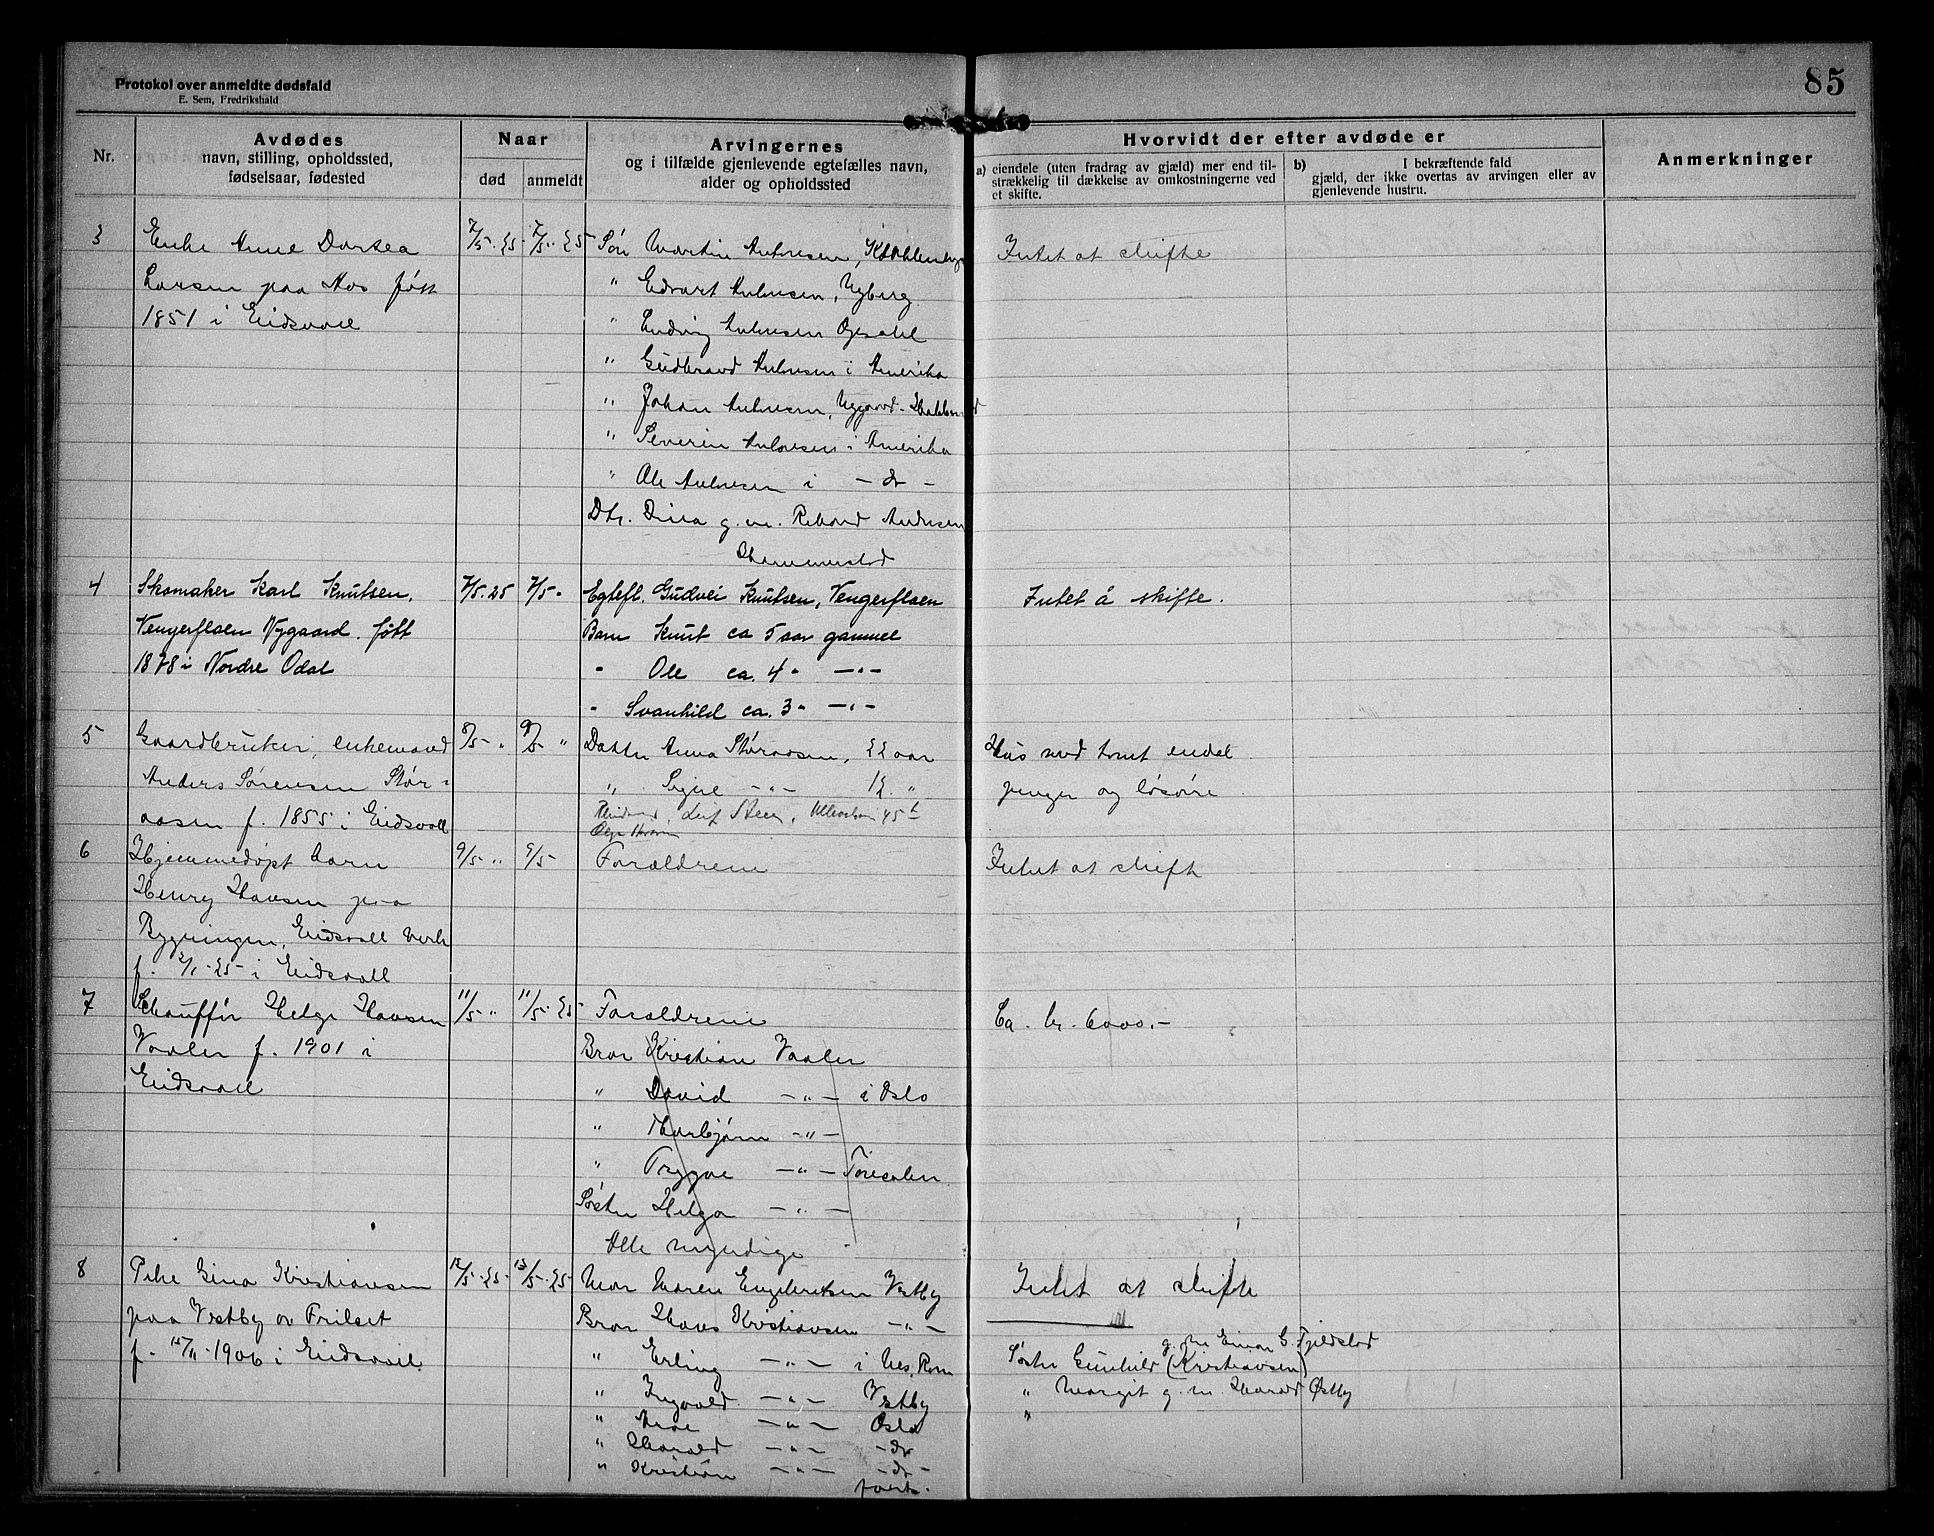 Protokol over anmeldte dødsfald
E. Sem, Fredrikshald
85
Nr.
Avdødes
navn, stilling, opholdssted,
fødselsaar, fødested
Naar
død
anmeldt
Arvingernes
og i tilfælde gjenlevende egtefælles navn,
alder og opholdssted
Hvorvidt der efter avdøde er
a) eiendele (uten fradrag av gjæld) mer end til-
strækkelig til dækkelse av omkostningerne ved
et skifte.
b) I bekræftende fald
gjæld, der ikke overtas av arvingen eller av
gjenlevende hustru.
Anmerkninger
3
Enke Anne Dortea
Larsen paa Aas født
1851 i Eidsvoll
7/5-25- 7/5- 25-
Søn Martin Antonsen,
" Edvart Antonsen, Nyberg
" Ludvig Antonsen Opsahl
" Gudbrand Antonsen i Amerika
" Johan Antonsen, Nygaard
" Severin Antonsen i Amerika
" Ole Antonsen i - do -
Dtr. Dina g. m. Rikard Andresen
Hammerstad
Intet at skifte
4
Skomaker Karl Knutsen,
Vengerflaen Nygaard. født
1878 i Nordre Odal
7/5-25 7/5- "
Egtefl. Gudvei Knutsen, Vengerflaen
Barn Knut ca 5 aar gammel
" Ole ca. 4 " -"-
" Svanhild ca. 3 " -"-
Intet å skifte.
5
Gaardbruker, enkemand
Anders Sørensen Stør-
aasen f. 1855 i Eidsvoll
8/5- " 9/5- "
Datter Anna Støraasen, 22 aar
" Signe -"- 12 "
Hus med tomt endel
penger og løsøre
6
Hjemmedøpt barn
Henry Hansen paa
Bygningen, Eidsvoll Verk
f. 2/1-25- i Eidsvoll
9/5- " 9/5-
Forældrene
Intet at skifte
7
Chauffør Helge Hansen
Vaaler f. 1901 i
Eidsvoll
11/5- " 11/5-25-
Forældrene
Bror Kristian Vaaler
" David -"- i Oslo
" Thorbjørn -"-
" Trygve -"-
Søster Helga -"-
Alle myndige
Ca. kr. 6000.-
8
Pike Gina Kristiansen
paa Vestby av Frilset
f. 15/11-1906 i Eidsvoll
12/5-25- 13/5-25-
Mor Maren Engebretsen Vestby
Bror Hans Kristiansen -"-
" Erling -"- i Nes, Rom
" Ingvald -"- Vestby
" Arne -"- Oslo
" Harald -"- -do-
" Kristian -"- -do-
forts.
Intet at skifte
g. m. Einar G. Fjeldstad
Søster Gunhild (Kristiansen)
" Margit g. m. Harald Østby
"